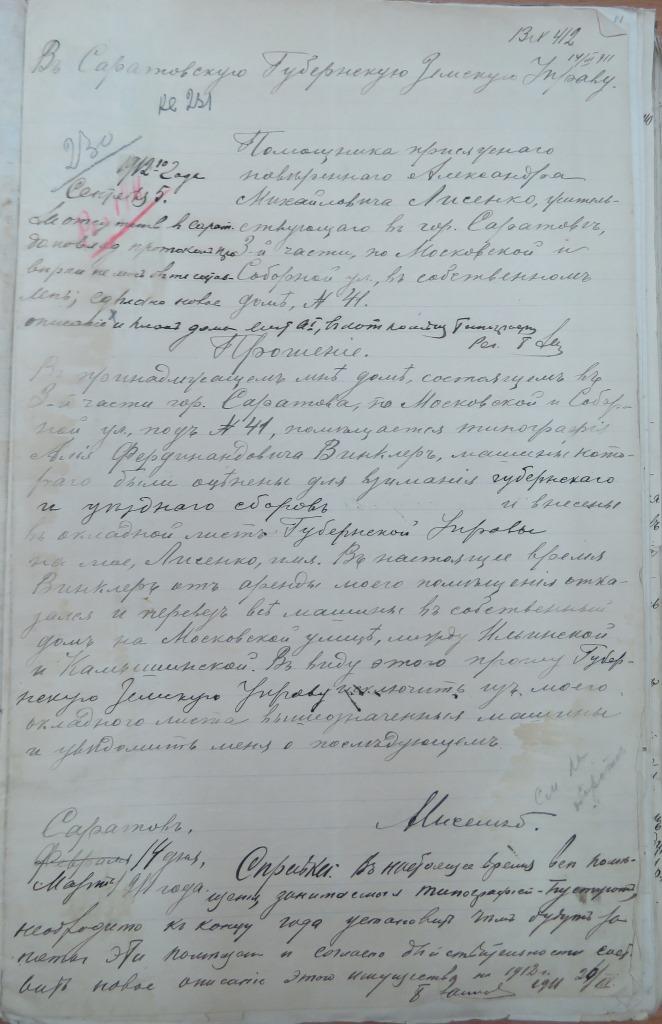 В № 412
14/III 911
11
Въ Саратовскую Губернскую Земскую Управу.
№ 231
230
Помощника присяжнаго
повѣреннаго Александра
Михайловича Лисенко, житель-
ствующаго въ гор. Саратовѣ,
3-й части, по Московской и
Соборной ул., въ собственномъ
домѣ, № 41.
1912 года
Сентября 5.
новое
описаніе и
дома
Прошеніе.
Въ принадлежащемъ мнѣ домѣ, состоящемъ въ
3-й части гор. Саратова, по Московской и Собор-
ной ул., подъ № 41, помѣщается типографія
Фердинандовича Винклеръ, машины кото-
раго были оцѣнены для взиманія губернскаго
и уѣзднаго сборовъ и внесены
въ окладной листъ Губернской Управы
на мое, Лисенко, имя. Въ настоящее время
Винклеръ отъ аренды моего помѣщенія отка-
зался и перевезъ всѣ машины въ собственный
домъ на Московской улицѣ, между Ильинской
и Камышинской. Въ виду этого прошу Губер-
нскую Земскую Управу исключить изъ моего
окладного листа вышеозначенныя машины
и увѣдомить меня о послѣдующемъ.
Саратовъ,
14 дня,
Марта 911 года.
Лисенко.
См на
оборотѣ
Справка: Въ настоящее время всѣ помѣ-
щенія занимаемыя типографіей пустуютъ,
необходимо къ концу года установить чѣмъ будутъ за-
няты эти помѣщен и согласно дѣйствительности сост
вить новое описаніе этого имущества на 1912 г.
1911 26/III